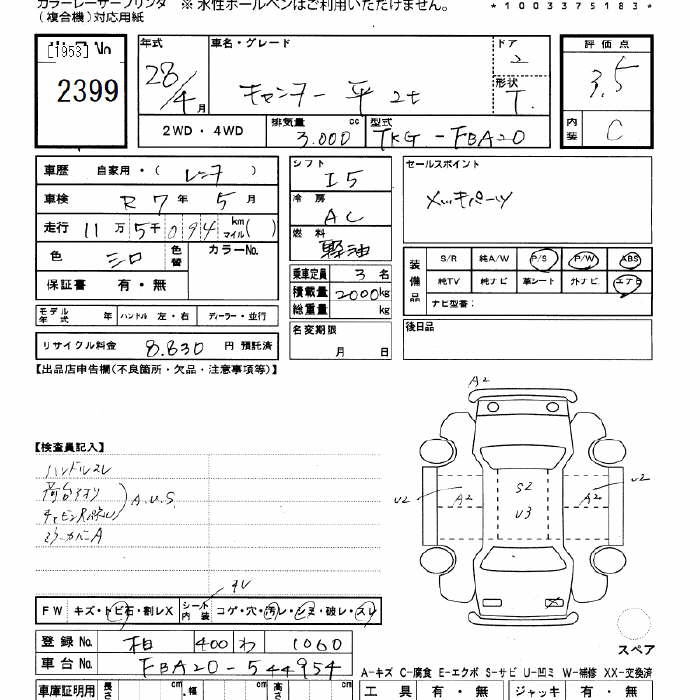 カラーレーザープリンタ ※ 水性ボールペンはご利用いただけません。 *1003375183*
(複合機)対応用紙
[1953] No
2399
年式 28/4 月
車名・グレード キャンター 平 2t
ドア 2
形状 T.
評価点 3.5
内装 C
2WD・4WD
排気量 3.000 cc
型式 TKG-FBA20
車歴 自家用・( レンタ )
車検 R 7 年 5 月
走行 11 万 5 千 094 km マイル( )
色 シロ 色替
カラーNo.
保証書 有・無
シフト I5
冷房 AC
燃料 軽油
乗車定員 3 名
積載量 2000 kg
総重量 kg
名変期限 月 日
セールスポイント
メッキパーツ
装備品 S/R 純A/W P/S P/W ABS
純TV 純ナビ 革シート 外ナビ エアB
ナビ型番:
後日品
モデル年式 年 ハンドル 左・右 ディーラー・並行
リサイクル料金 8.830 円 預託済
【出品店申告欄(不良箇所・欠品・注意事項等)】
【検査員記入】
ハンドルスレ
A.U.S
A2
U2 A2 S2 A2 U2
U3
FW キズ・トビ石・割レX シート内装 コゲ・穴・汚レ・シミ・破レ・スレ
スペア
登録 No. 柏 400 わ 1060
車台 No. FBA20-544954
A-キズ C-腐食 E-エクボ S-サビ U-凹ミ W-補修 XX-交換済
車庫証明用 長さ cm 幅 cm 高さ cm
工具 有・無 ジャッキ 有・無